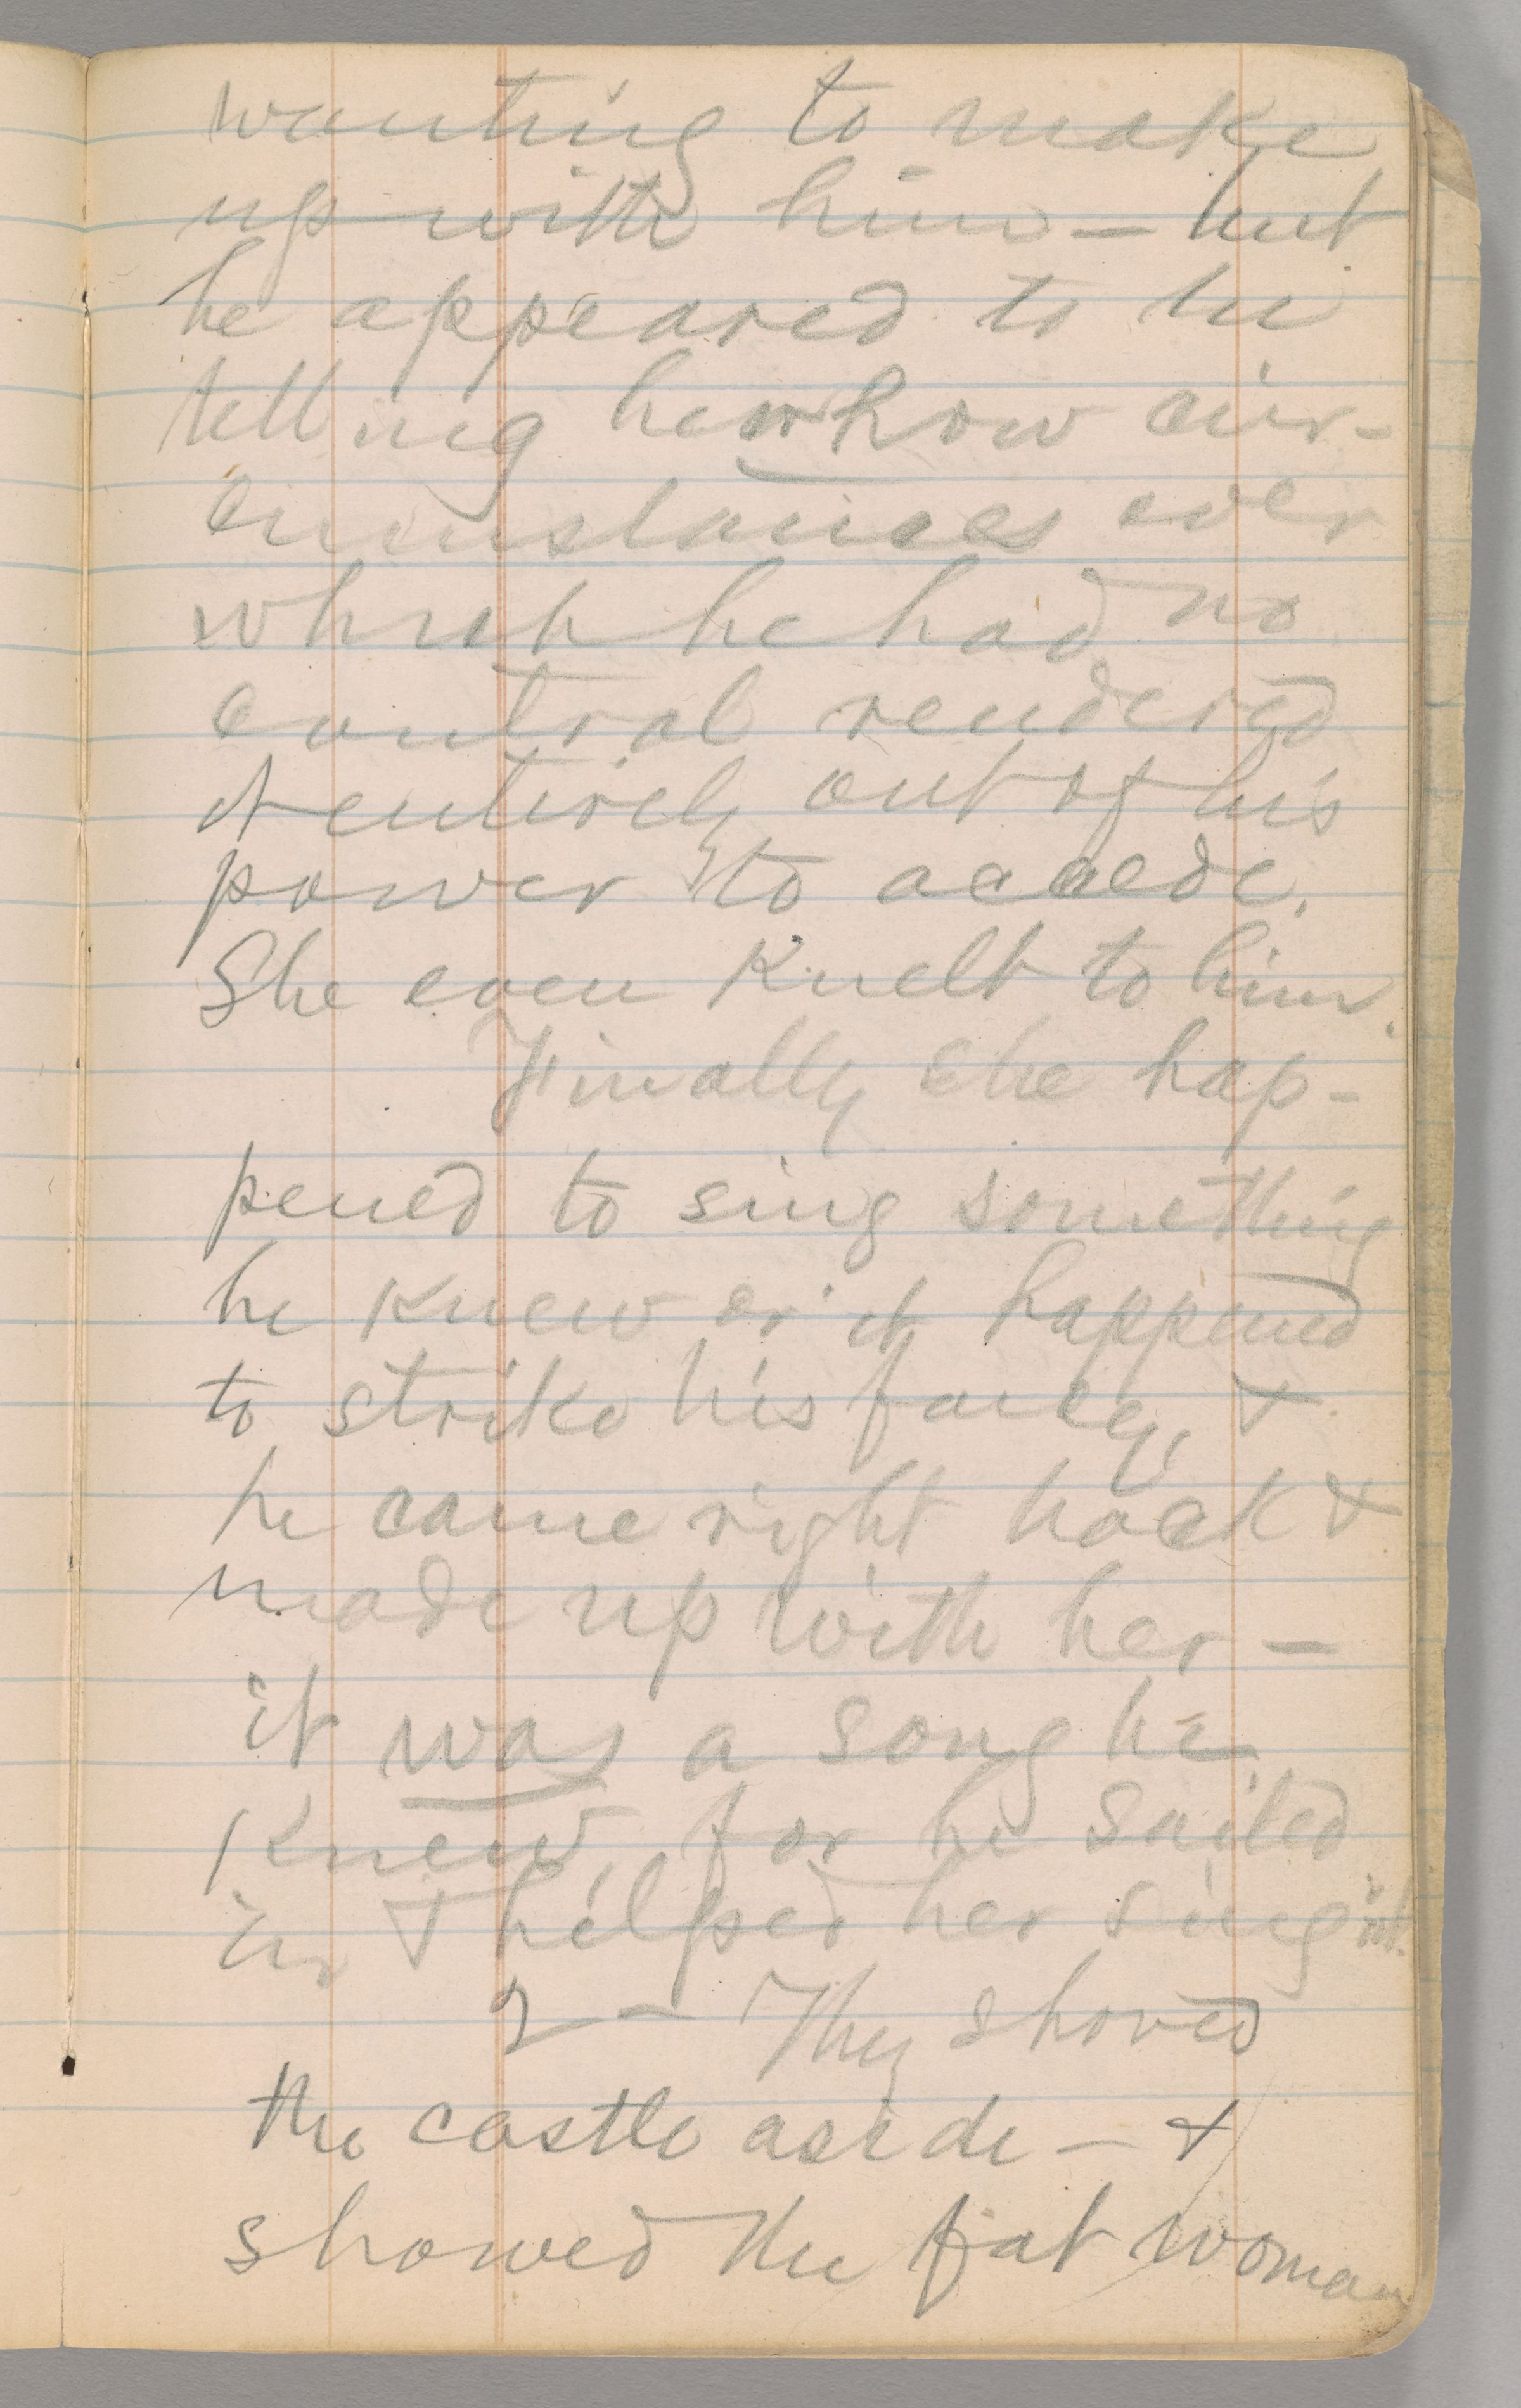 wanting to make
up with him — but
he appeared to be
telling her how cir-
cumstances over
which he had no
control rendered
it entirely out of his
power to accede.
She even knelt to him.
Finally she hap-
pened to sing something
he knew or it happened
to strike his fancy, &
he came right back &
made up with her —
it was a song he
knew, for he sailed
in & helped her sing it.
2 — They shoved
the castle aside — &
showed the fat woman